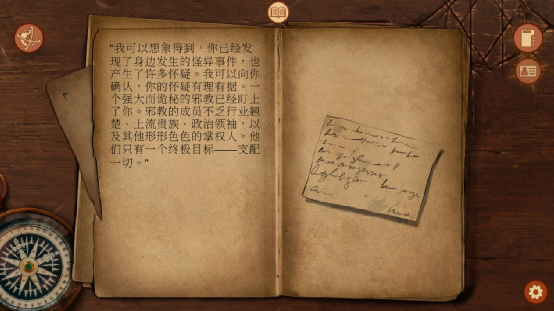 “我可以想象得到，你已经发
现了身边发生的怪异事件，也
产生了许多怀疑。我可以向你
确认，你的怀疑有理有据。一
个强大而诡秘的邪教已经盯上
了你。邪教的成员不乏行业翘
楚、上流贵族、政治领袖，以
及其他形形色色的掌权人。他
们只有一个终极目标——支配
一切。”